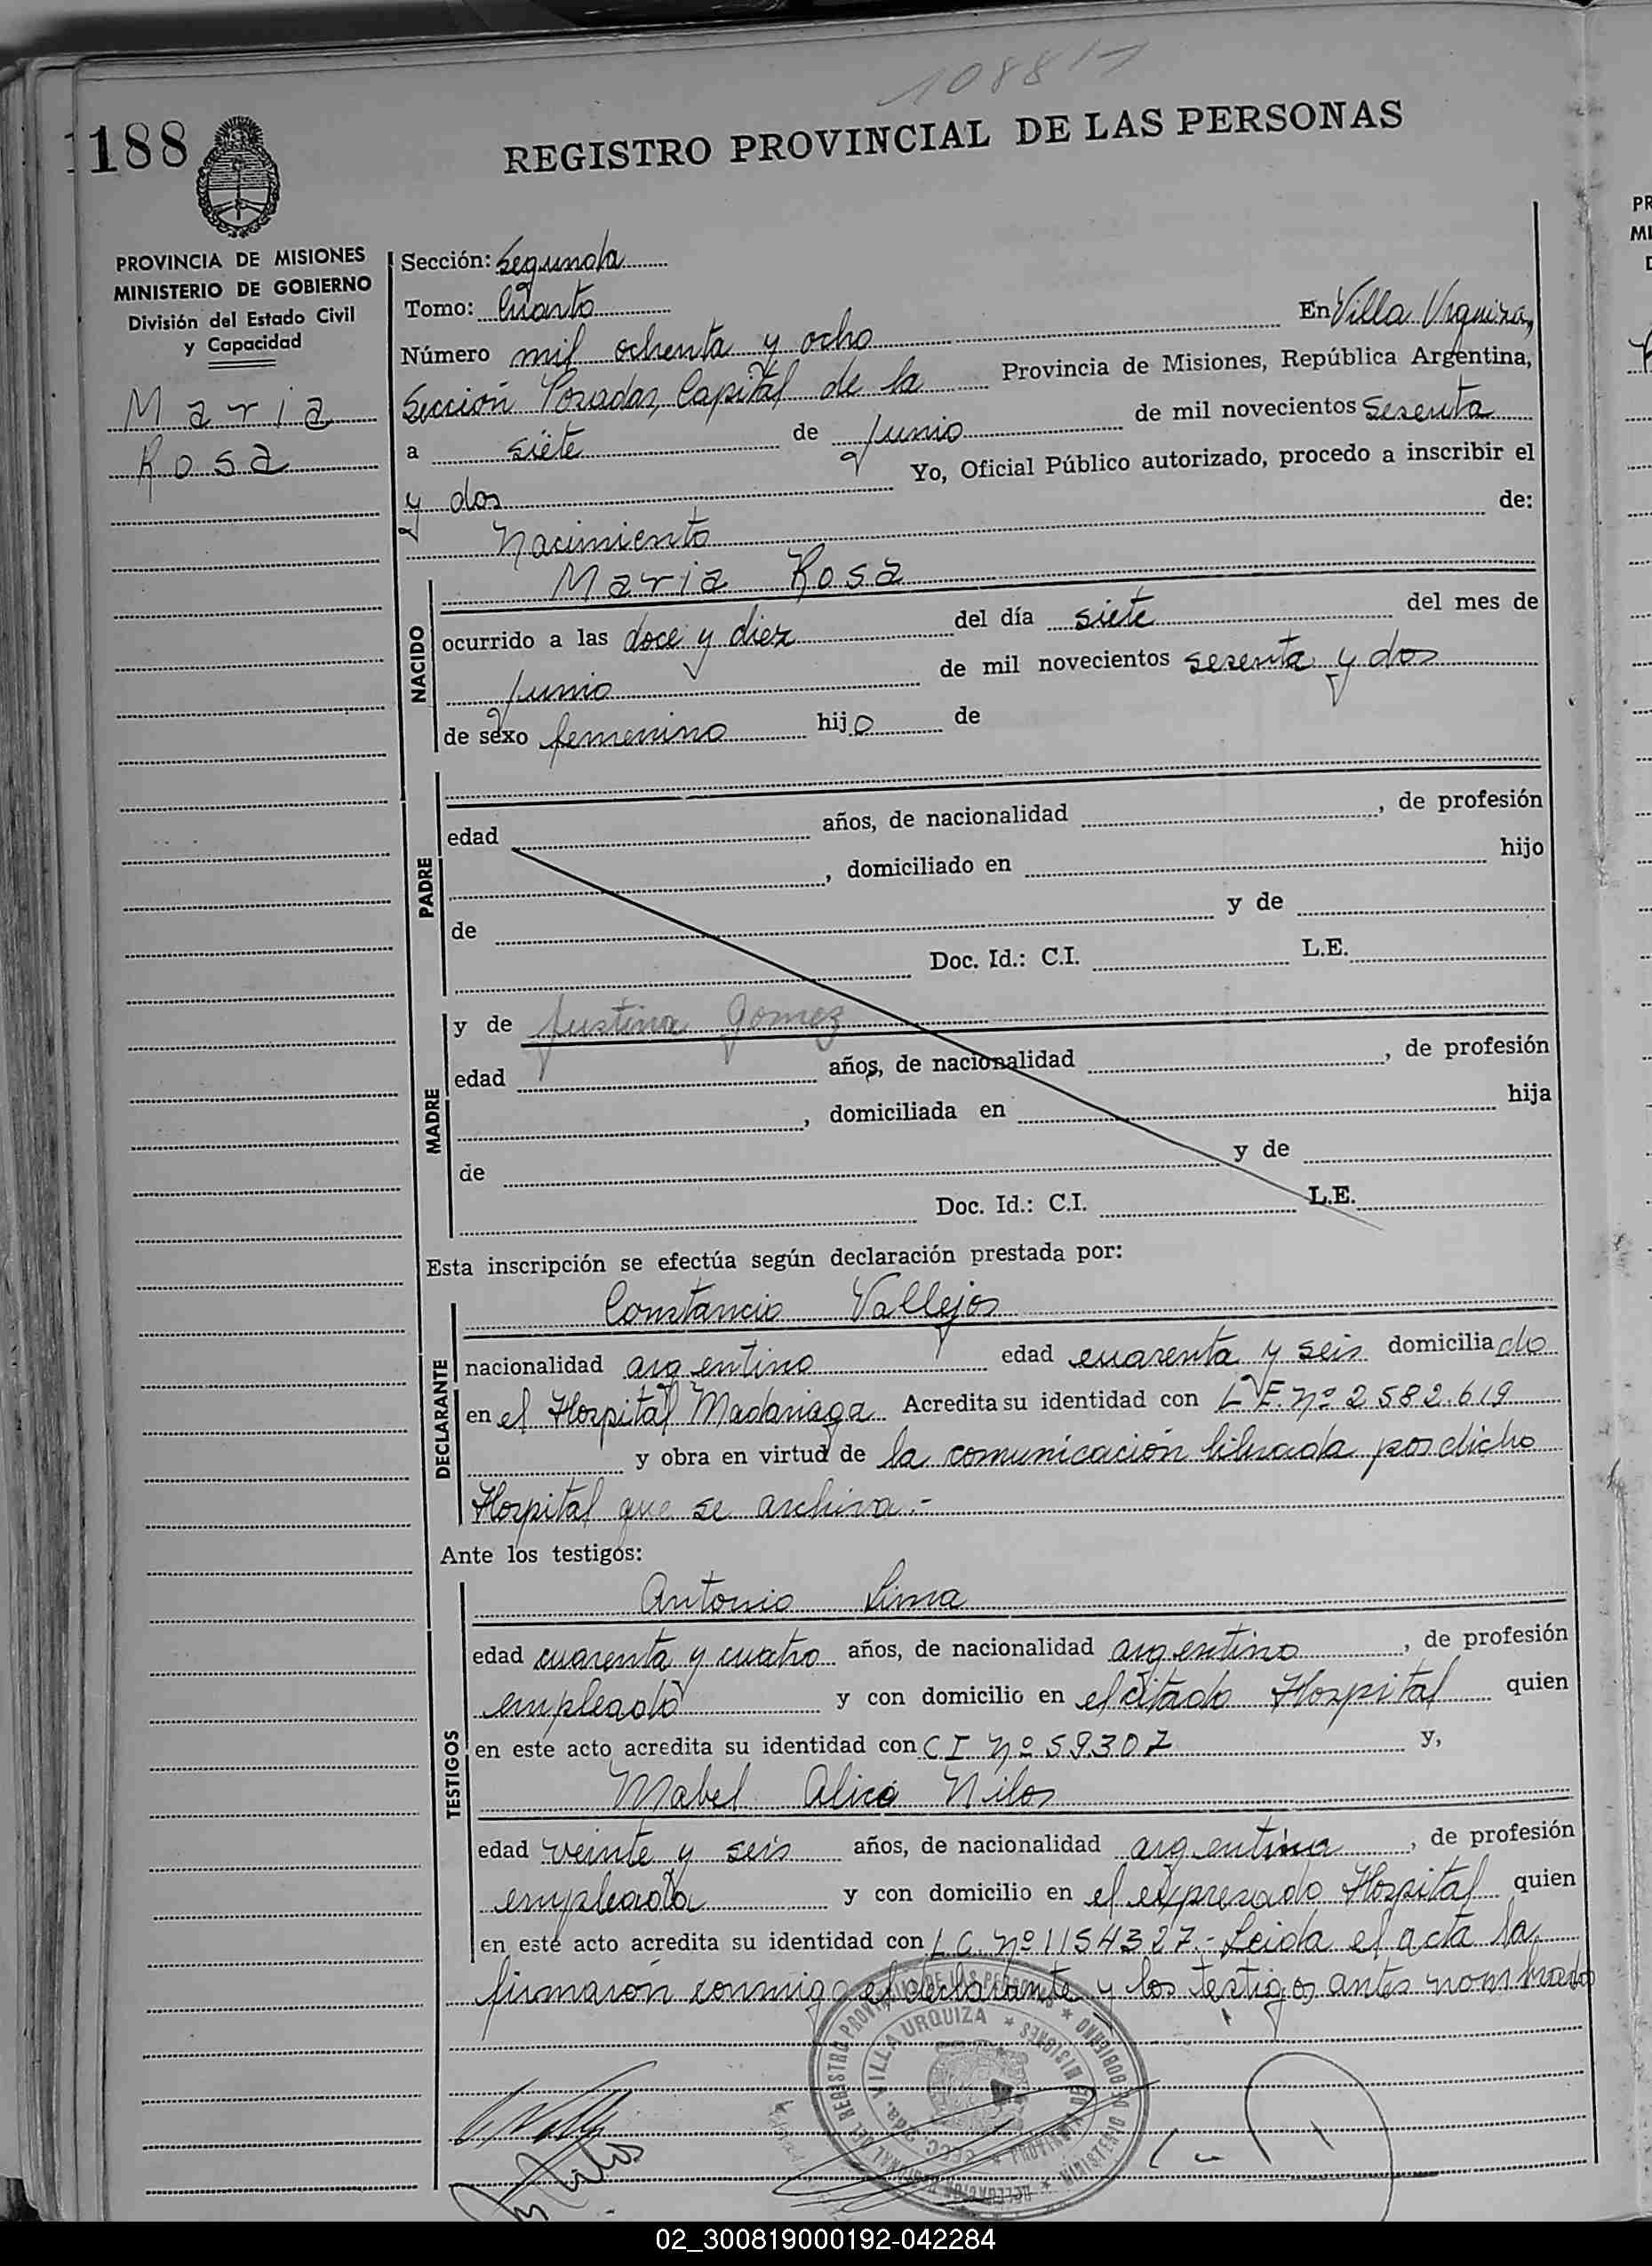 188
REGISTRO PROVINCIAL DE LAS PERSONAS
PROVINCIA DE MISIONES
MINISTERIO DE GOBIERNO
División del Estado Civil
y Capacidad
Maria
Rosa
Sección: Segunda
Tomo: Cuarto
Número mil ochenta y ocho En Villa Urquiza,
Sección Posadas, Capital de la Provincia de Misiones, República Argentina,
a siete de Junio de mil novecientos Sesenta
y dos Yo, Oficial Público autorizado, procedo a inscribir el
Nacimiento de:
NACIDO
Maria Rosa
ocurrido a las doce y diez del día siete del mes de
Junio de mil novecientos sesenta y dos
de sexo femenino hijo de
PADRE
edad años, de nacionalidad , de profesión
, domiciliado en hijo
de y de
Doc. Id.: C.I. L.E.
MADRE
y de Justina Gomez
edad años, de nacionalidad , de profesión
, domiciliada en hija
de y de
Doc. Id.: C.I. L.E.
Esta inscripción se efectúa según declaración prestada por:
DECLARANTE
Constancio Vallejos
nacionalidad argentino edad cuarenta y seis domiciliado
en el Hospital Madariaga Acredita su identidad con L E. nº 2582.619
y obra en virtud de la comunicación librada por dicho
Hospital que se archiva.-
Ante los testigos:
TESTIGOS
Antonio Lima
edad cuarenta y cuatro años, de nacionalidad argentino, de profesión
empleado y con domicilio en el citado Hospital quien
en este acto acredita su identidad con C I. Nº 59307 y,
Mabel Alica Nilos
edad veinte y seis años, de nacionalidad argentina, de profesión
empleada y con domicilio en el expresado Hospital quien
en este acto acredita su identidad con L C. nº 1154327.- Leida el acta la
firmaron conmigo el declarante y los testigos antes nombrados
VILLA URQUIZA
02_300819000192-042284